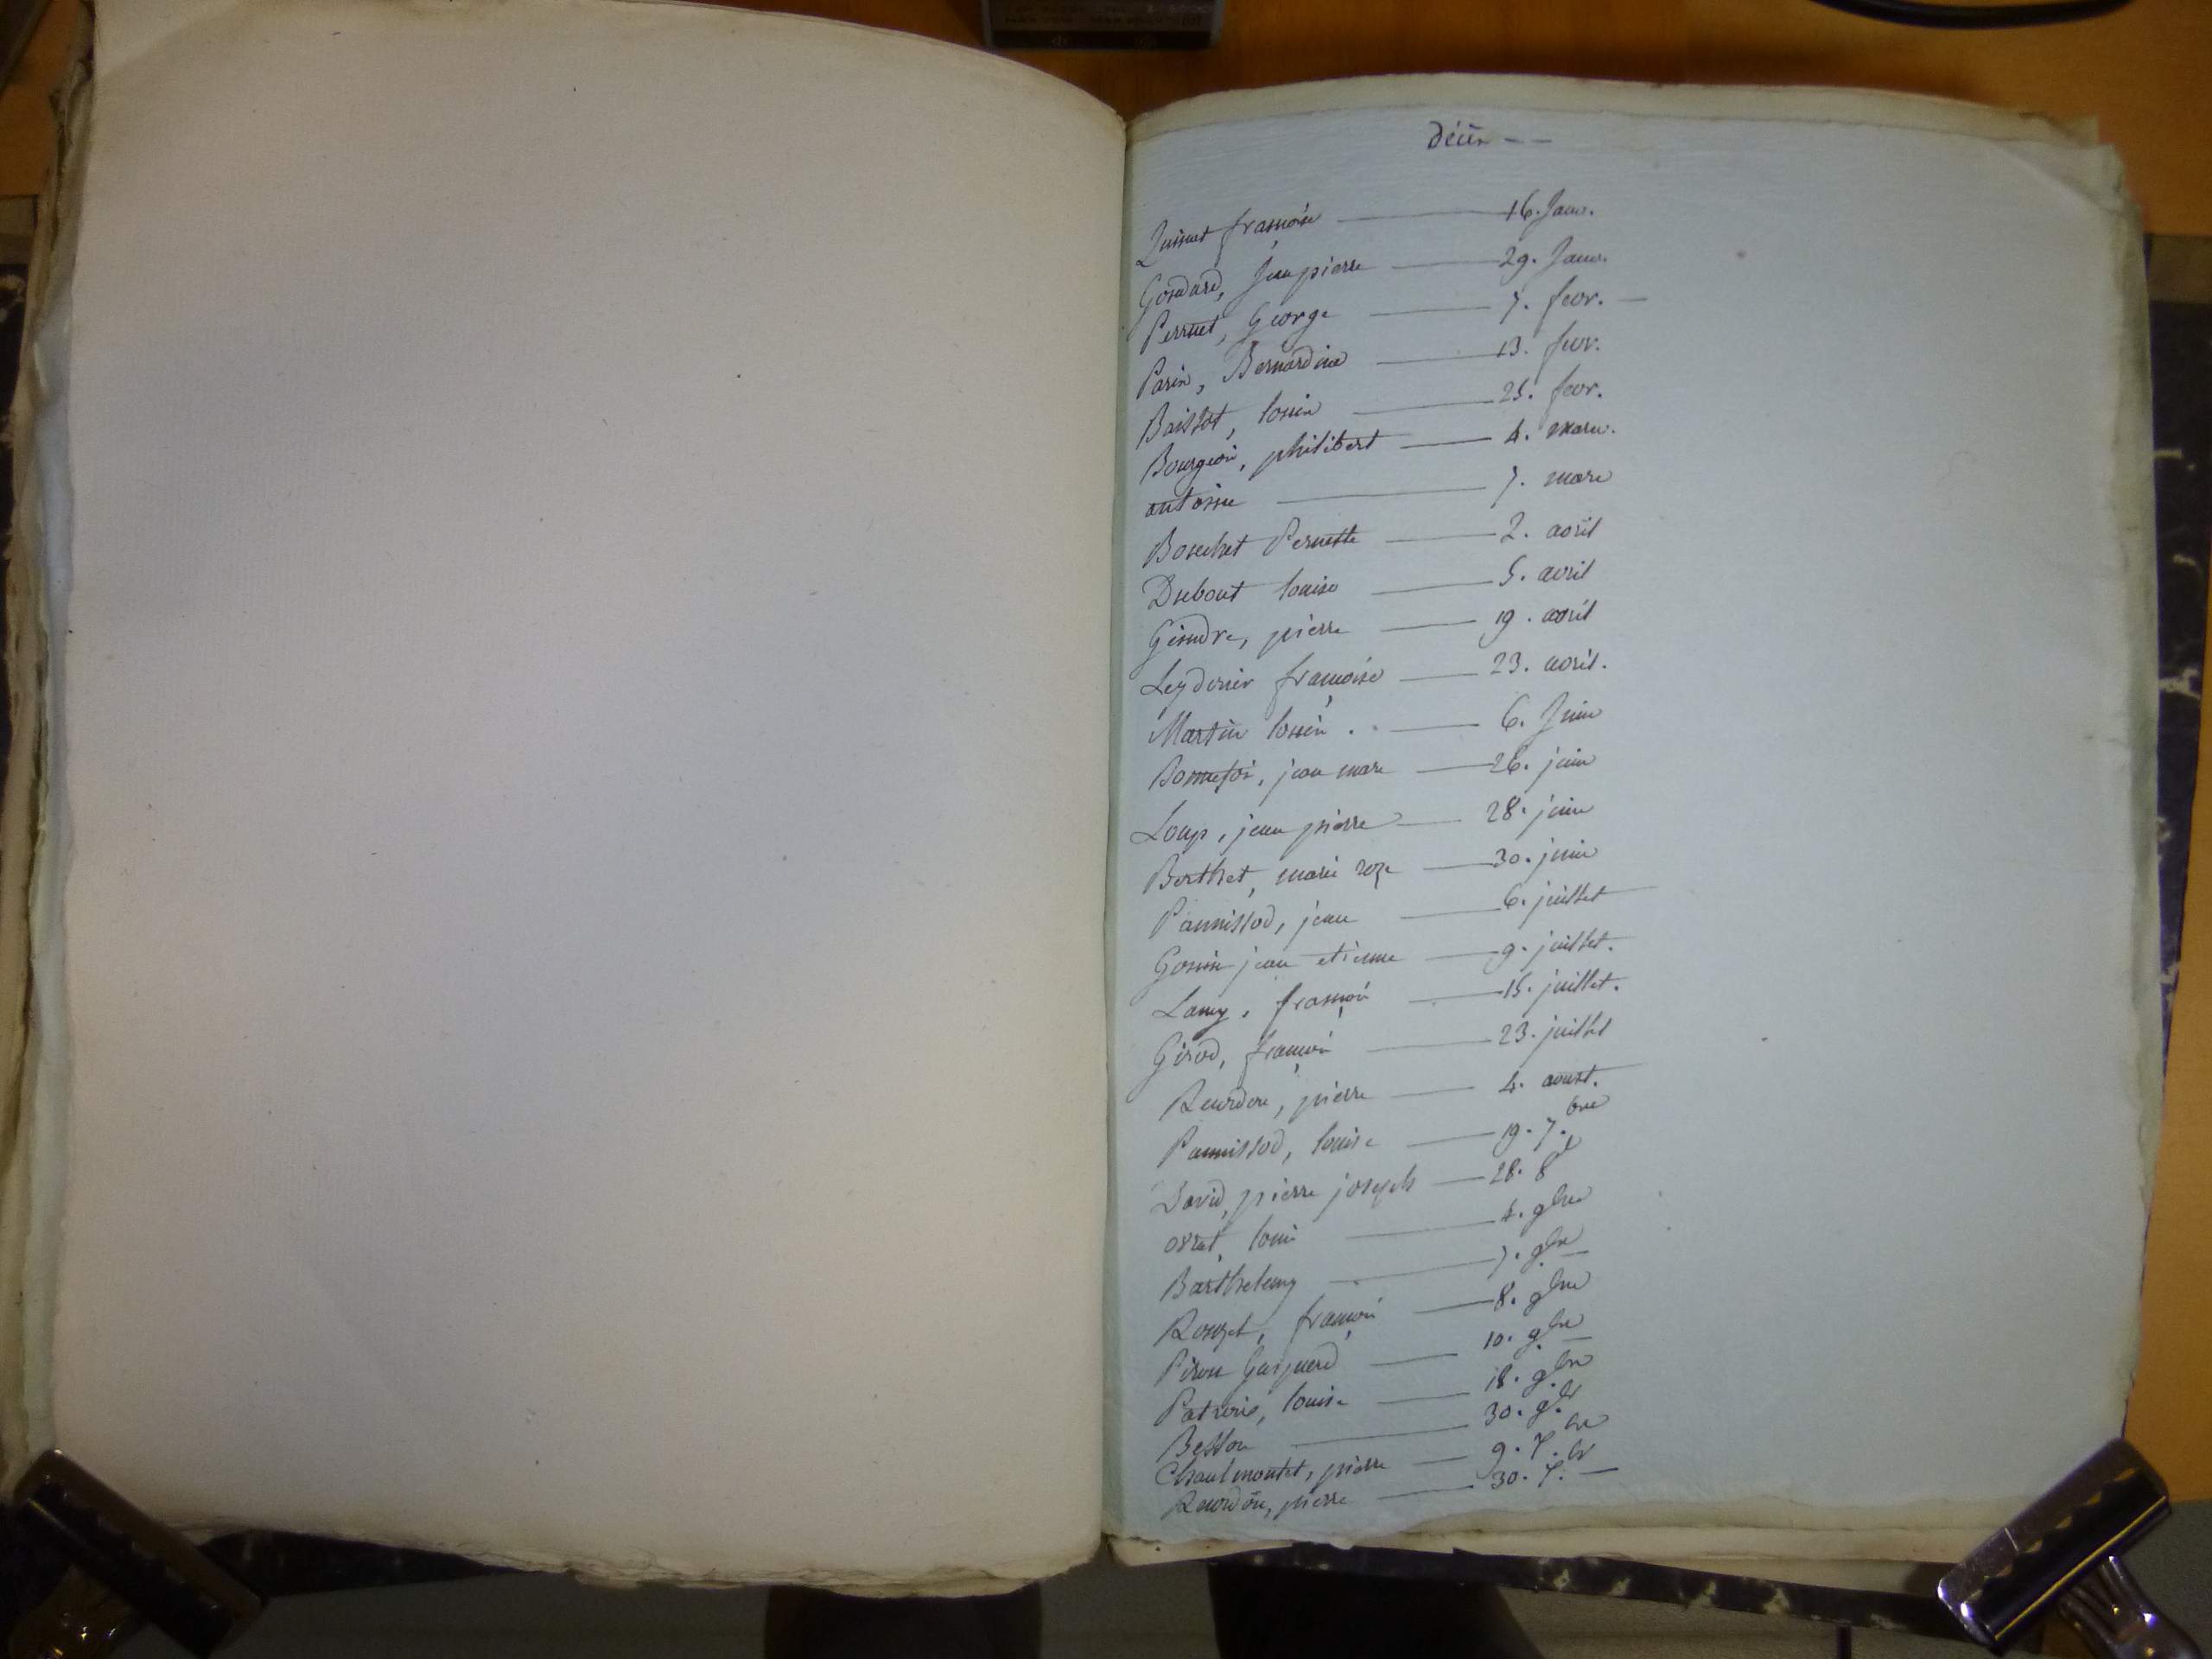 décès
Quinet françoise 16. Janv.
Goudard, Jean pierre 29. Janv.
Perruet, George 7. fevr.
Paris, Bernardine 13. fevr.
Baissot, louis 25. fevr.
Bourgeois, philibert 4. mars.
antoine 7. mars
Bouchet Pernette 2. avril
Dubout louise 5. avril
Geindre, pierre 19. avril
Leydenier françoise 23. avril.
Martin louis. 6. Juin
Bonnefoi, jean marc 26. juin
Loup, jean pierre 28. juin
Berthet, marie roze 30. juin
Pannissod, jean 6. juillet
Gonin jean etienne 9. juillet.
Lamy, françois 15. juillet.
Girod, françois 23. juillet
Reverdon, pierre 4. aoust.
Pannissod, louise 19. 7.bre
David, pierre joseph 28. 8
orset, louis 4. 9bre
Barthelemy 7. 9bre
Rouzet, françois 8. 9bre
Piron Gaspard 10. 9bre
Patruis, louise 18. 9bre
Besson 30. 9.br
Chaulmontet, pierre 9. X.bre
Reverdon, pierre 30. X.br